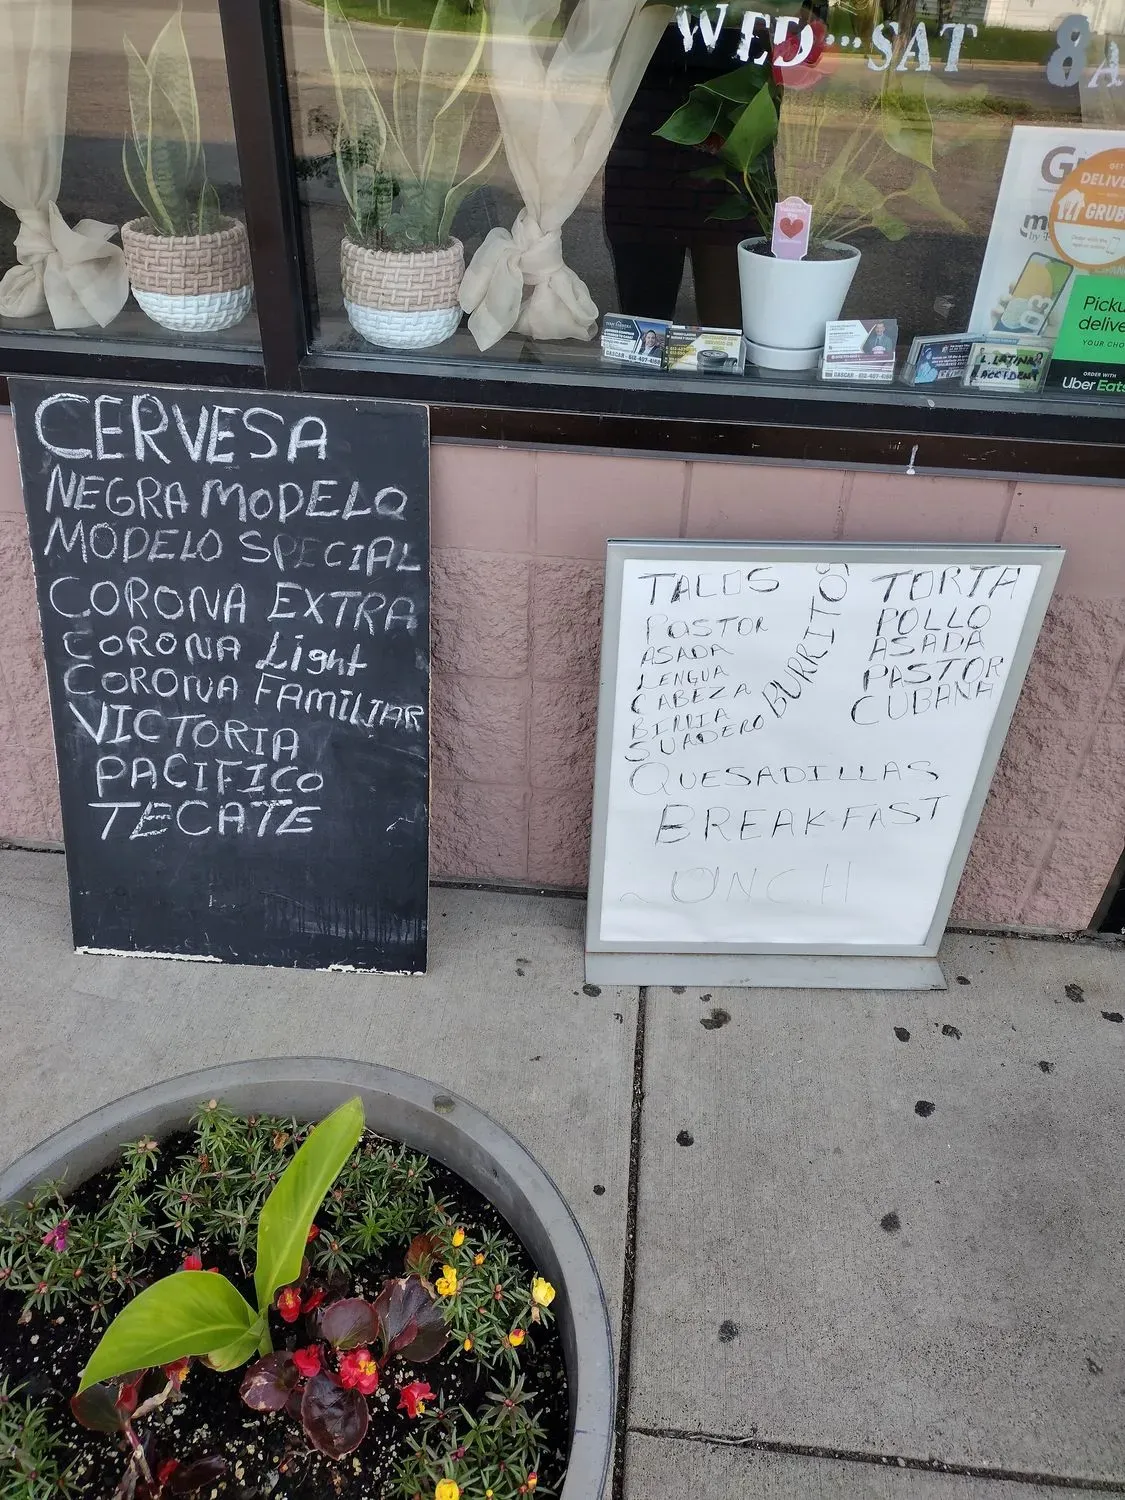 WED...SAT 8A
DELIVE
GRUB
Picku
delive
YOUR CHO
ORDER WITH
Uber Eats
GASCAR - 612-407-4168
L. LATINA
ACCIDENT
CERVESA
NEGRA MODELO
MODELO SPECIAL
CORONA EXTRA
CORONA Light
CORONA FAMILIAR
VICTORIA
PACIFICO
TECATE
TACOS
PASTOR
ASADA
LENGUA
CABEZA
BIRRIA
SUADERO
BURRITOS
TORTA
POLLO
ASADA
PASTOR
CUBANA
QUESADILLAS
BREAKFAST
LUNCH